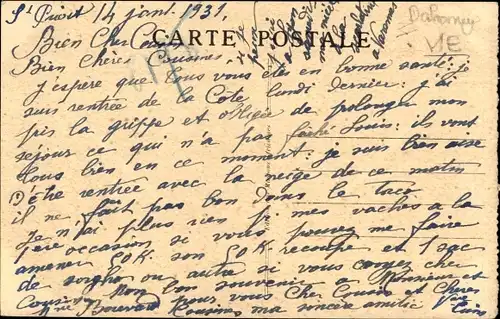 St Privat 14 janv. 1931,
CARTE POSTALE
Dahomey
ME
Bien Cher Cousin
Bien Chères Cousines,
J'espère que tous vous êtes en bonne santé: je
suis rentrée de la Côte lundi dernier: j'ai
pris la grippe et obligée de prolonger mon
séjour ce qui n'a pas faché Louis: ils vont
tous bien en ce moment: je suis bien aise
d'être rentrée avec la neige de ce matin
il ne faut pas bon dans le
Je n'ai plus rien pr mes vaches a la
1ère occasion si vous pouvez me faire
amener 50K son 50K recoupe et 1 sac
de sorgho ou autre si vous
Cousines Mon bon souvenir a Monsieur et
pour vous Cher Cousin et Chères
Cousines ma sincère amitié